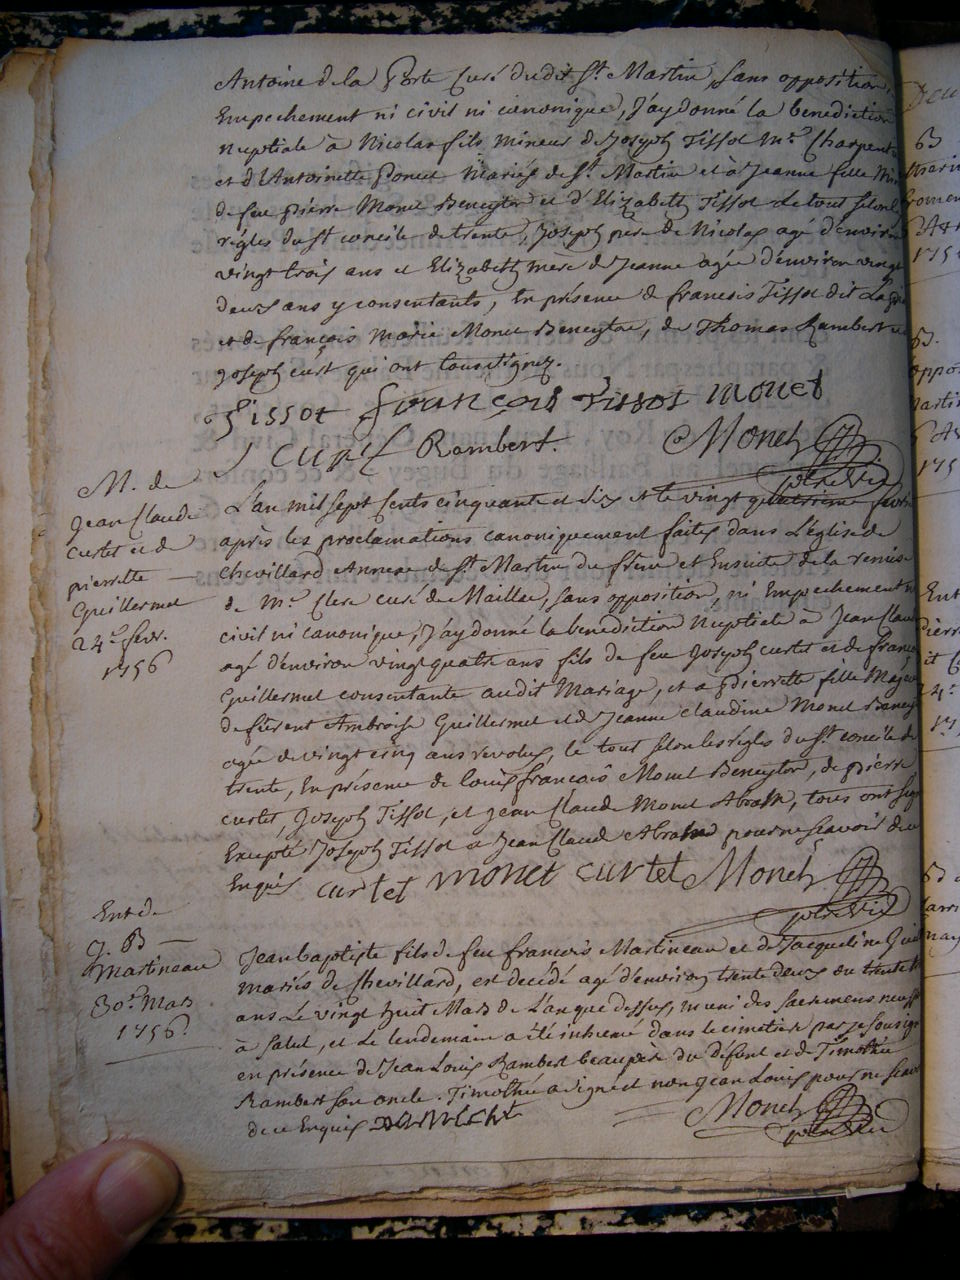 Antoine de la Porte Curé dudit St. Martin, Sans opposition,
Empechement ni civil ni canonique, J'ay donné la benediction
nuptiale à Nicolas fils mineur de Joseph Tissot Me. Charpent
et d'Antoinette Poncet Mariés de St. Martin et à Jeanne fille
de feu pierre Monet Beneyton et d'Elizabeth Tissot Le tout selon
régles du St concile de trente, Joseph pere de Nicolas agé d'environ
vingt trois ans et Elizabeth mere de Jeanne agée d'environ vingt
deux ans y consentants, En présence de francois Tissot dit
et de françois Marie Monet Beneyton, de Thomas Rambert
joseph curt qui ont soussignez.
Tissot françois Tissot monet
J curt Rambert. Monet
M. de
Jean Claude
Curtet et de
pierrette
Guillermet
24e. fevr.
1756
L'an mil sept cents cinquante et six et le vingt quatrieme
après les proclamations canoniquement faites dans L'église de
Chevillard Annexe de St. Martin du frene et Ensuite de la remise
de Mr. Clerc curé de Maillac, sans opposition, ni Empechement
civil ni canonique, J'ay donné la benediction Nuptiale à Jean Claude
agé d'environ vingt quatre ans fils de feu Joseph curtet et de
Guillermet consentante audit Mariage, et a pierrette fille
de fürent Ambroise Guillermet et de Jeanne Claudine Monet
agée de vingt cinq ans revolus, le tout selon les régles du St. concile de
trente, En présence de Louis françois Monet Beneyton, de pierre
curtet, Joseph Tissot, et Jean Claude Monet Abram, tous ont
Excepté Joseph Tissot et Jean Claude Abram pour ne scavoir de
Enquis curtet monet curtet Monet
Ent. de
J. B
Martineau
30e. Mars
1756.
Jean baptiste fils de feu francois Martineau et de Jacqueline
mariés de Chevillard, est decédé agé d'environ trente deux ou trente
ans Le vingt huit Mars de L'an que dessus, muni des sacremens
à salut, et Le lendemain a été inhumé dans le cimetiere par je
en présence de Jean Louis Rambert beaupère du défunt et de Timothée
Rambert son oncle. Timothée a signé et non Jean Louis pour ne
de ce Enquis Monet